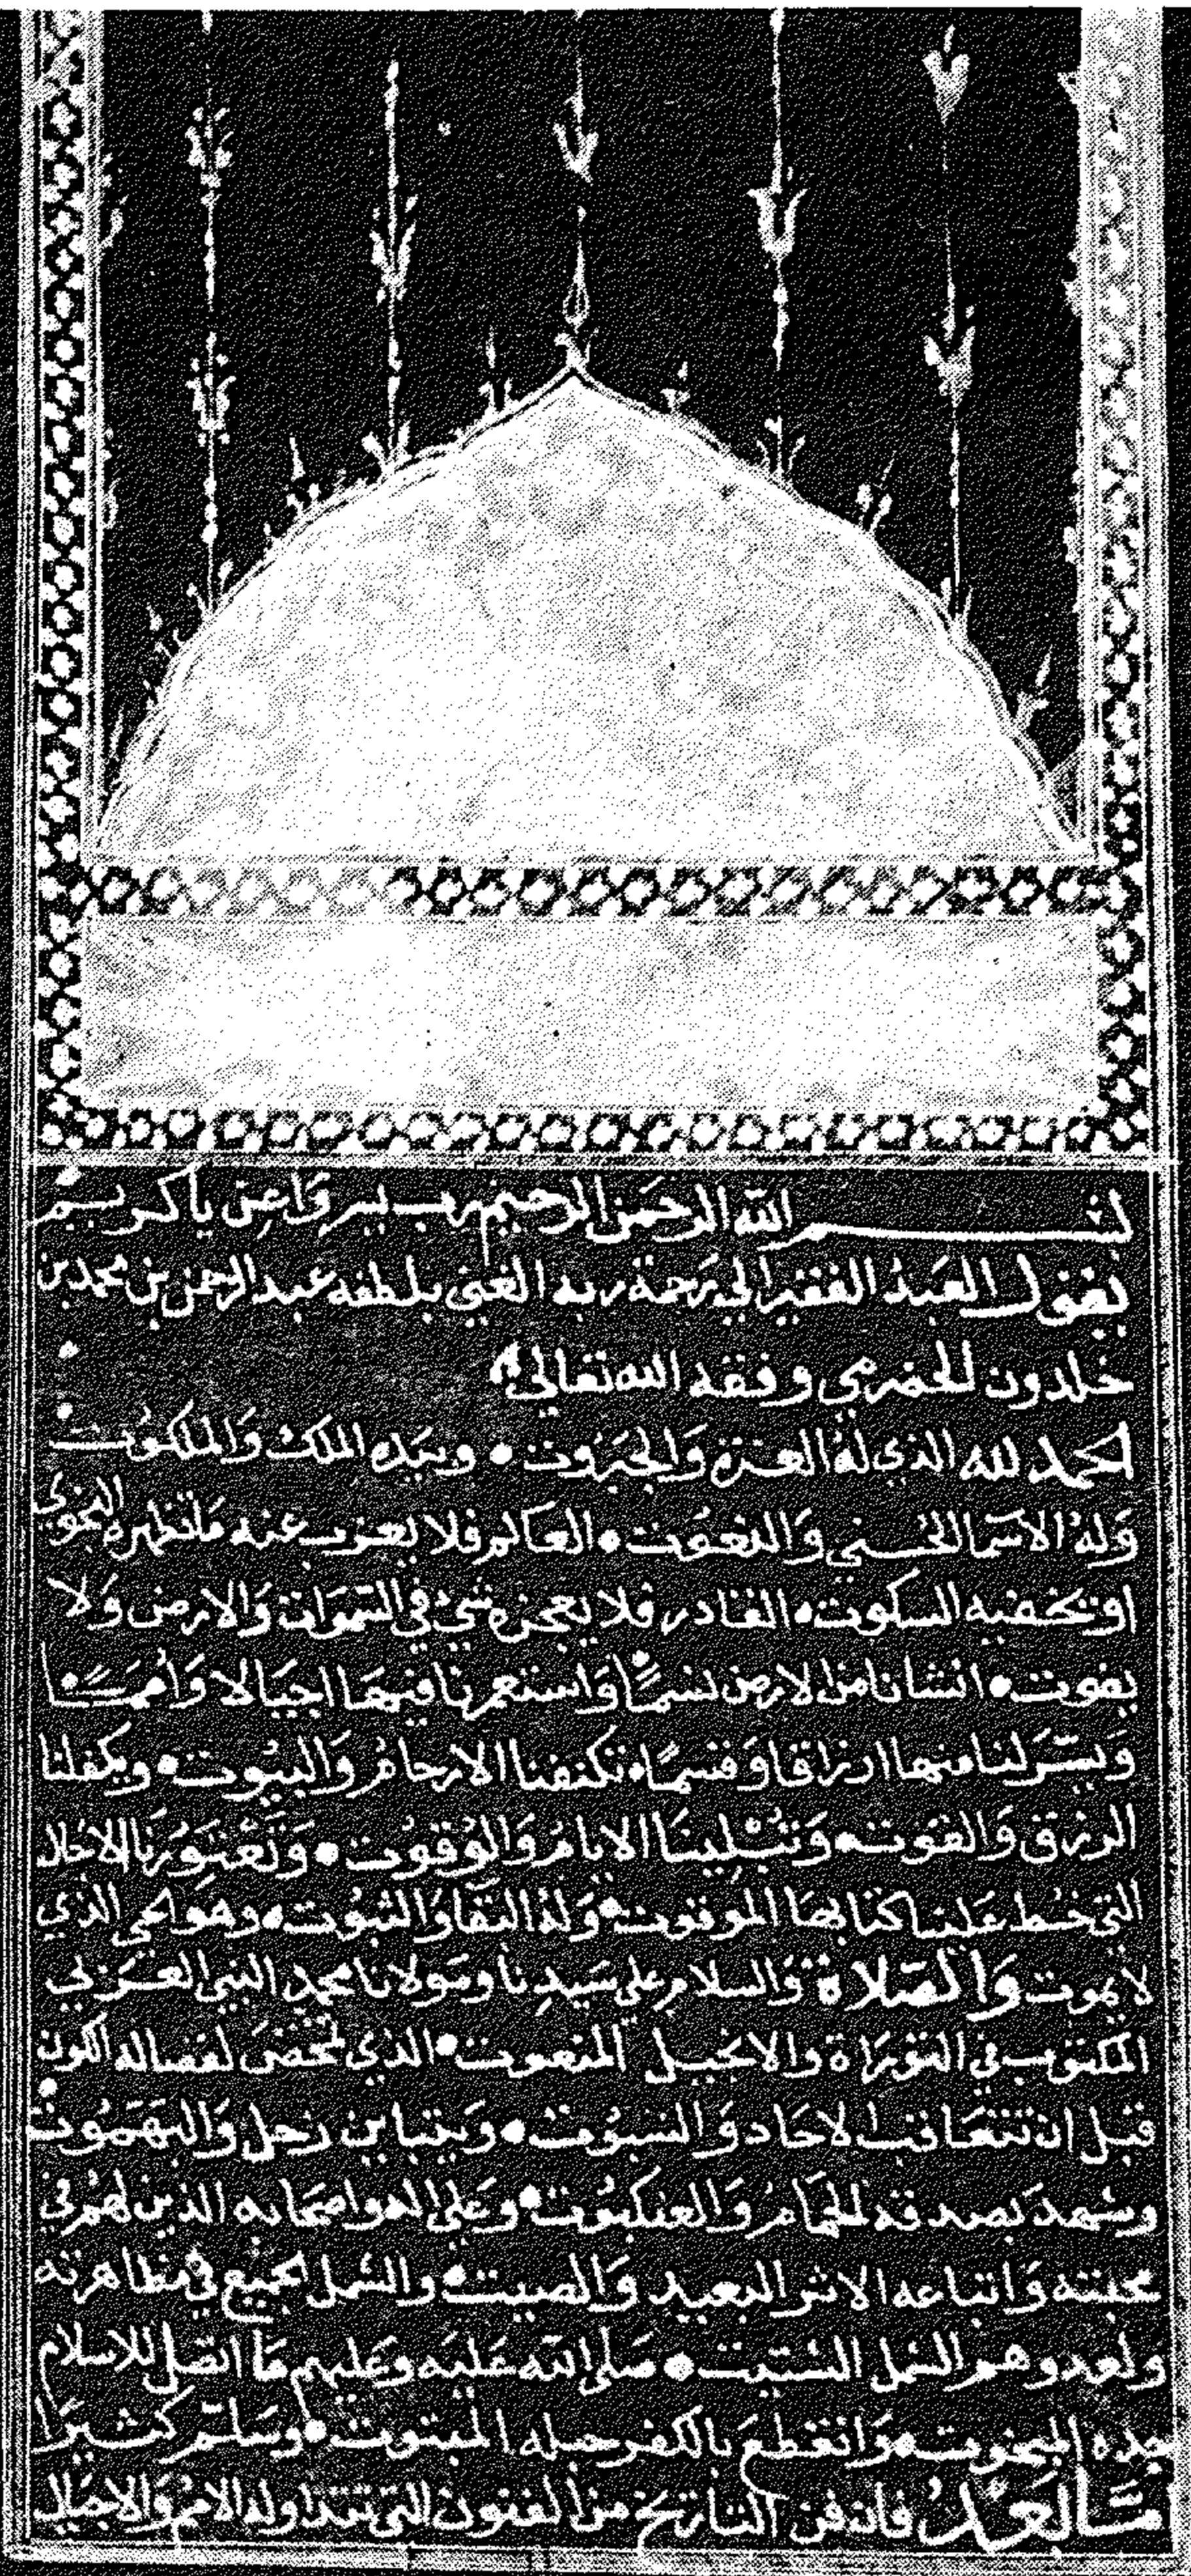 بسم الله الرحمن الرحيم رب يسر وَاعِن يا كريم
يقول العَبدُ الفقير الي رَحمة ربه الغني بلطفه عبد الرحمن بن محمد بن
خلدون الحضرمي وفقه الله تعالي
الحمد لله الذي لهُ العزة وَالجبَرُوت • وبيَده الملك وَالملكوُت
وَلهُ الاسمَا الحُسني وَالنعوُت • العالم فلا يعزب عنه مَا تظهره النجوي
او تخفيه السكوت • القادر فلا يعجزه شئ في السّمَوات وَالارض وَلا
يفوت • انشأنا من الارض نسمًا وَاستعمرنا فيهَا اجيَالا وَاُممًا
وَيسّر لنا منها ارزاقا وَقسمًا • تكنفنا الارحامُ وَالبيُوت • ويكفلنا
الرزق وَالقوت • وَتُبلينَا الايامُ وَالوُقوُت • وَتَعْتوِرُنا الاجال
التي خُط عَلينا كتابهَا الموقوت • وَلهُ البقا وَالثبوُت • وهو الحي الذي
لا يموت وَالصّلاة وَالسلام علي سَيدِنا وَمَولانا محمدٍ النبي العَربي
المكتوب في التورَاة وَالانجيل المنعوت • الذي تمخضَ لفصاله الكون
قبل ان تتعَاقب الاحَاد وَالسبوُت • وَيتباين زحل وَاليَهَمُوت
وشهدَ بصدقه الحمَامُ وَالعنكبوُت • وَعَلي اله واصحابه الذين لهم في
محبته وَاتباعه الاثر البعيد وَالصيت • والشمل الجميع في مظاهرته
ولعدوهم الشمل الشتيت • صَلي الله عَليه وعَليهم مَا اتصَل للاسلام
جده المبخوت • وَانقطعَ بالكفر حبله المبتوت • وَسَلم كثيرًا
امّا بَعْدُ فان فن التاريخ من الفنون التي تتداوله الامم وَالاجيال